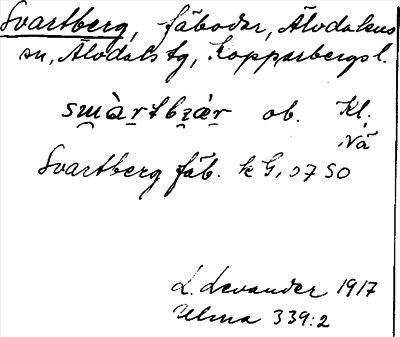 Svartberg, fäbodar, Älvdalens
sn, Älvdals tg, Kopparbergs l.
smàrtbær ob. Kl.
Nä
Svartberg fäb. k G, 57 SO
L. Levander 1917
Ulma 339:2